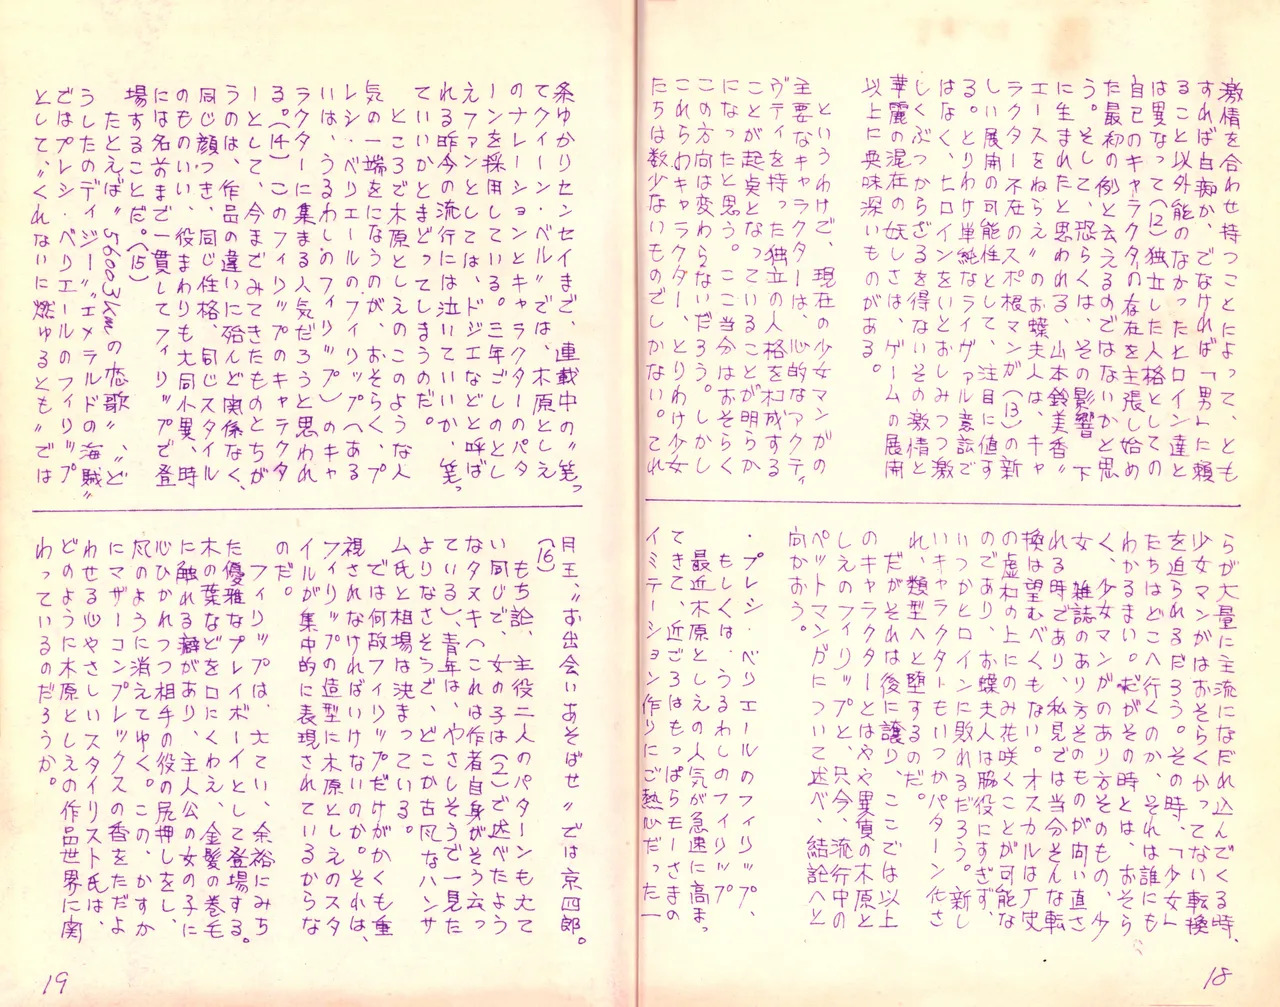 激情を合わせ持つことによって、とも
すれば白痴か、でなければ「男」に頼
ること以外能のなかったヒロイン達と
は異なって(12)独立した人格としての
自己のキャラクタの存在を主張し始め
た最初の例と云えるのではないかと思
う。そして、恐らくは、その影響下
に生まれたと思われる、山本鈴美香〝
エースをねらえ〟のお蝶夫人は、キャ
ラクター不在のスポ根マンガ(13)の新
しい展開の可能性として、注目に値す
る。とりわけ単純なライヴァル意識で
はなく、ヒロインをいとおしみつつ激
しくぶつからざるを得ないその激情と
華麗の混在の妖しさは、ゲームの展開
以上に興味深いものがある。
というわけで、現在の少女マンガの
主要なキャラクターは、心的なアクティ
ヴティを持った独立の人格を构成する
ことが起点となっていることが明らか
になったと思う。ここ当分はおそらく
この方向は変わらないだろう。しかし
これらのキャラクター、とりわけ少女
たちは数少ないものでしかない。てれ
らが大量に主流になだれ込んでくる時、
少女マンガはおそらくかってない転換
を迫られるだろう。その時、「少女」
たちはどこへ行くのか、それは誰にも
わかるまい。だがその時とは、おそら
く、少女マンガのあり方そのもの、少
女雑誌のあり方そのものが向い直さ
れる時であり、私見では当分そんな転
換は望むべくもない。オスカルは「史
の虚构の上にのみ花咲くことが可能な
のであり、お蝶夫人は脇役にすぎず、
いつかヒロインに敗れるだろう。新し
いキャラクターもいつかパターン化さ
れ、類型へと堕するのだ。
だがそれは後に譲り、ここでは以上
のキャラクターとはやや異質の木原と
しえのフィリップと、只今、流行中の
ペットマンガについて述べ、結論へと
向かおう。
・プレシ・ベリエールのフィリップ、
もしくは、うるわしのフィリップ
最近木原としえの人気が急速に高まっ
てきて、近ごろはもっぱらモーさまの
イミテーション作りにご熱心だった一
条ゆかりセンセイまで、連載中の〝笑っ
てクイーン・ベル〟では、木原としえ
のナレーションとキャラクターのパタ
ーンを採用している。三年ごしのとし
えファンとしては、ドジエなどと呼ば
れる昨今の流行には泣いていいか、笑っ
ていいかとまどってしまうのだ。
ところで木原としえのこのような人
気の一端をになうのが、おそらく、プ
レシ・ベリエールのフィリップ(ある
いは、うるわしのフィリップ)のキャ
ラクターに集まる人気だろうと思われ
る。(14) このフィリップのキャラクタ
ーとして、今までみてきたものとちが
うのは、作品の違いに殆んど関係なく、
同じ顔つき、同じ性格、同じスタイル
のもののいい、役まわりも大同小異、時
には名前まで一貫してフィリップで登
場することだ。(15)
たとえば〝56003kmの恋歌〟、〝ど
うしたのディジー〟〝エメラルドの海賊〟
ではプレシ・ベリエールのフィリップ
として、〝くれないに燃ゆるとも〟では
月王、〝お出会いあそばせ〟では京四郎。
(16)
もち論、主役二人のパターンも大て
い同じで、女の子は(2)で述べたよう
なタヌキ(これは作者自身がそう云っ
ている)、青年は、やさしそうで一見た
よりなさそうで、どこか古風なハンサ
ム氏と相場は決まっている。
では何故フィリップだけがかくも重
視されなければいけないのか。それは、
フィリップの造型に木原としえのスタ
イルが集中的に表現されているからな
のだ。
フィリップは、大てい、余裕にみち
た優雅なプレイボーイとして登場する。
木の葉などを口にくわえ、金髪の巻毛
に触れる癖があり、主人公の女の子に
心ひかれつつ相手の役の尻押しをし、
風のように消えてゆく。この、かすか
にマザーコンプレックスの香をただよ
わせる心やさしいスタイリスト氏は、
どのように木原としえの作品世界に関
わっているのだろうか。
18
19